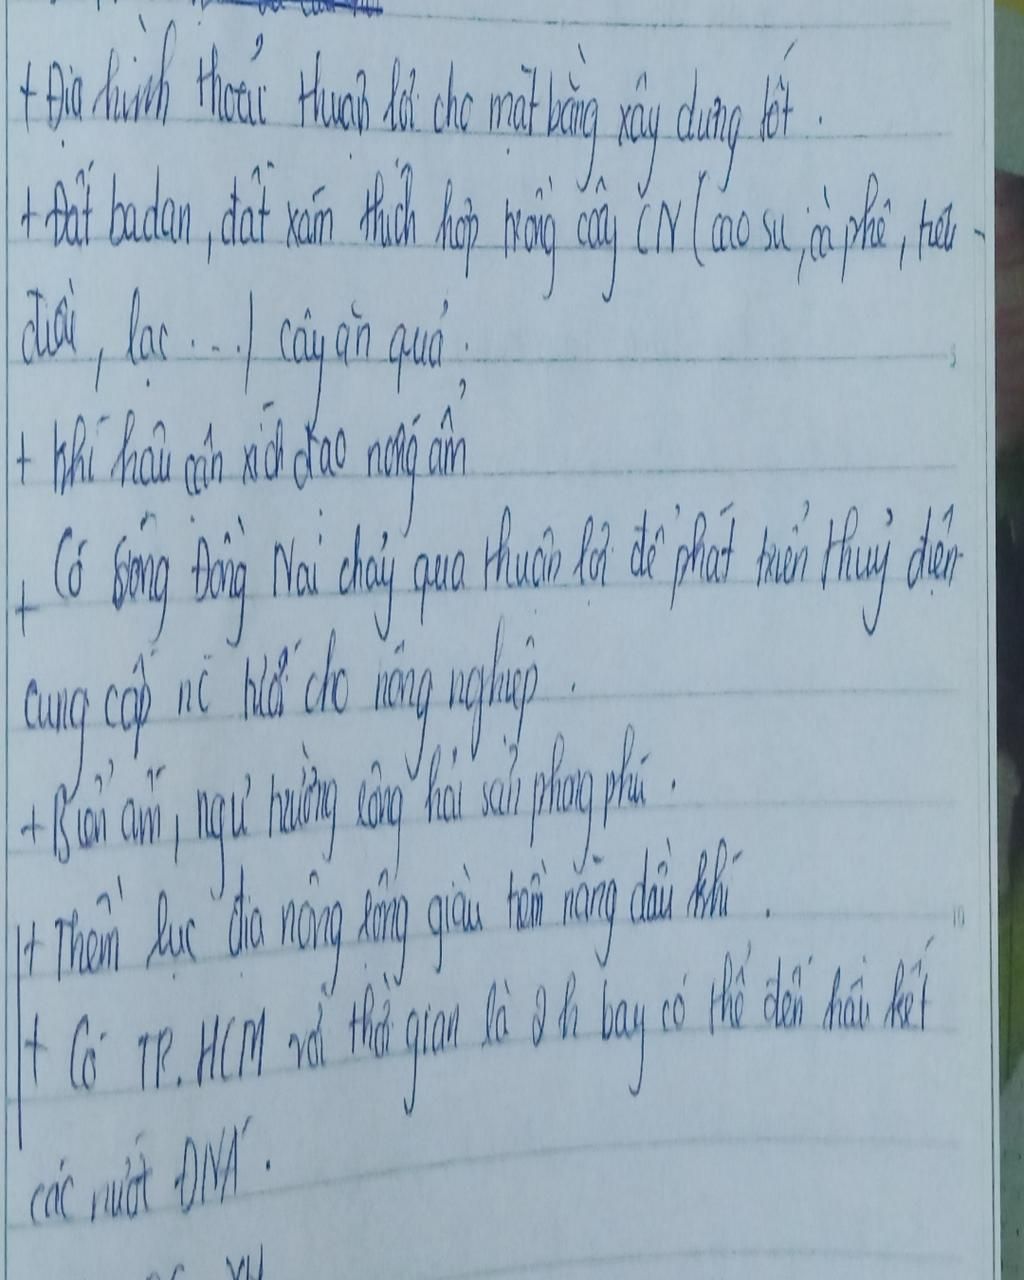 + Địa hình thoải thuận lợi cho mặt bằng xây dựng tốt.
+ Đất badan, đất xám thích hợp trồng cây CN (cao su, cà phê, tiêu
điều, lạc ...) cây ăn quả.
+ Khí hậu cận xích đạo nóng ẩm
+ Có sông Đồng Nai chảy qua thuận lợi để phát triển thuỷ điện
cung cấp nc tưới cho nông nghiệp.
+ Biển ấm, ngư trường rộng hải sản phong phú.
+ Thềm lục địa nông rộng giàu tiềm năng dầu khí.
+ Có TP. HCM với thời gian là 2h bay có thể đến hầu hết
các nước ĐNÁ.